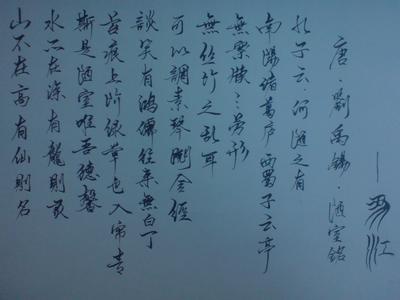 山不在高有仙則名
水不在深有龍則灵
斯是陋室唯吾德馨
苔痕上阶绿草色入帘青
談笑有鴻儒往来無白丁
可以調素琴閱金經
無丝竹之乱耳
無案牘之劳形
南陽諸葛庐西蜀子云亭
孔子云·何陋之有
唐·劉禹錫·陋室銘